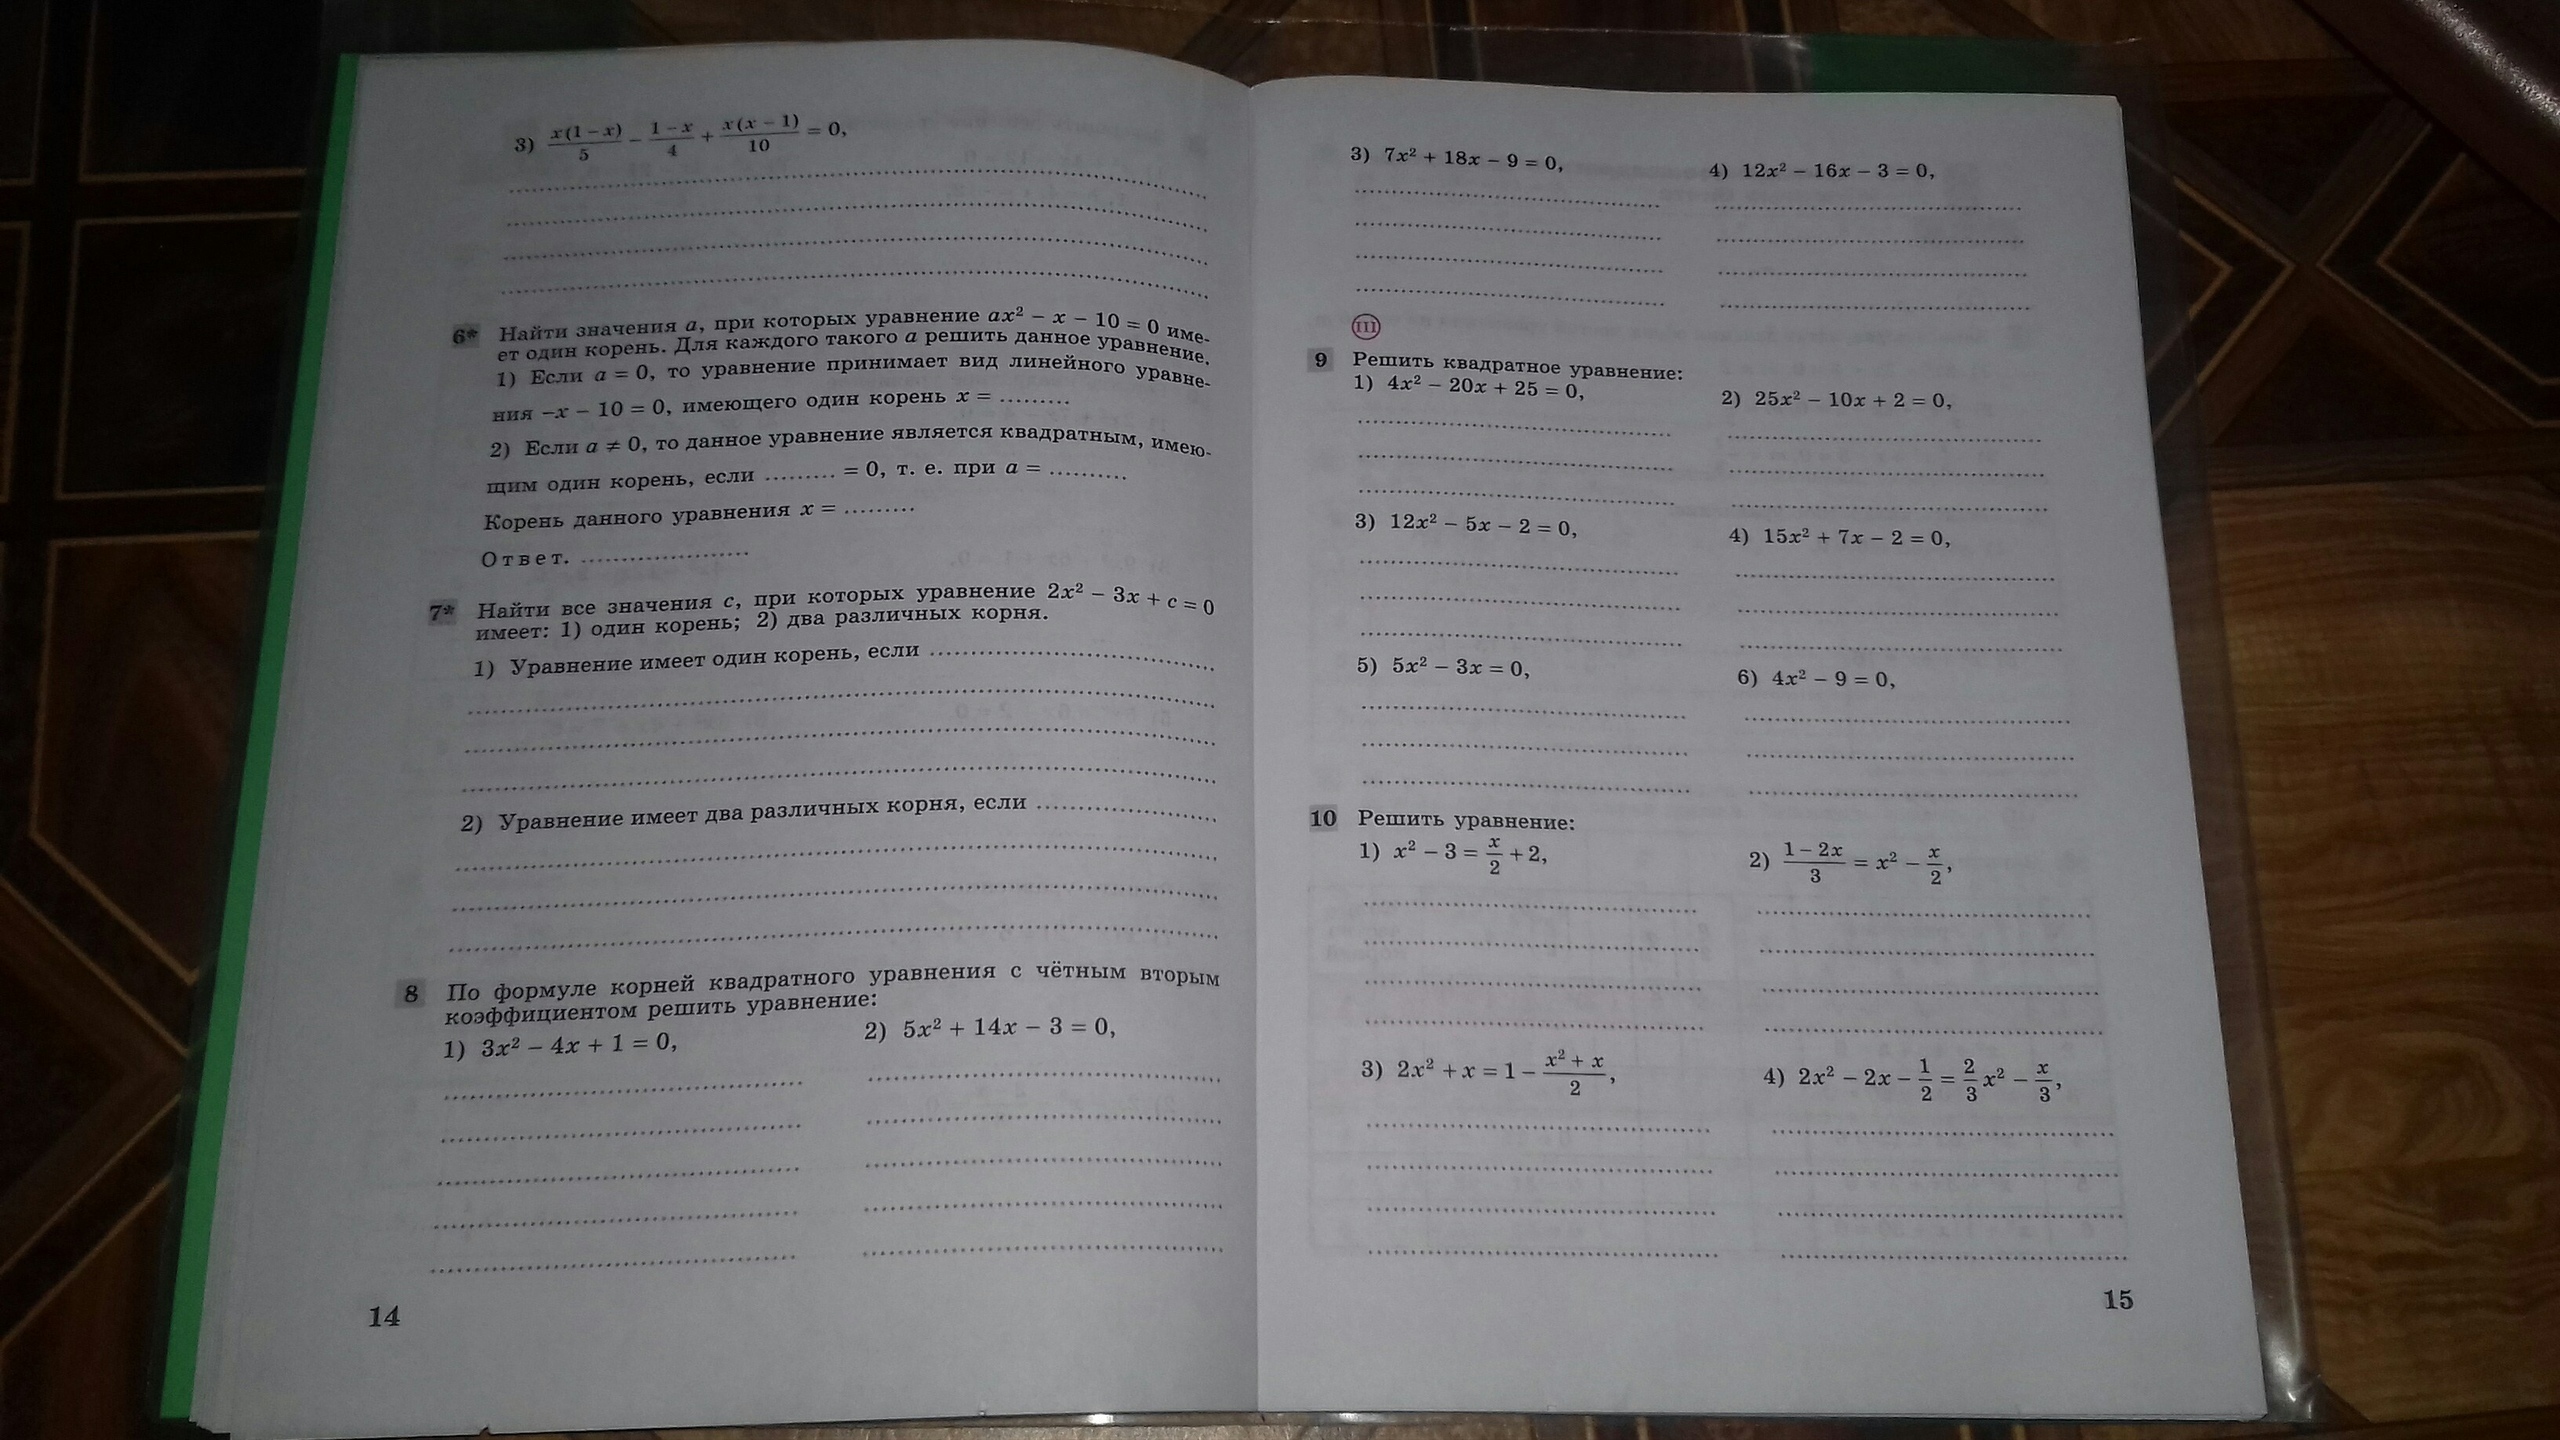 3) x(1 – x)/5 – 1 – x/4 + x(x – 1)/10 = 0,
6* Найти значения a, при которых уравнение ax² – x – 10 = 0 име-
ет один корень. Для каждого такого a решить данное уравнение.
1) Если a = 0, то уравнение принимает вид линейного уравне-
ния –x – 10 = 0, имеющего один корень x = .........
2) Если a ≠ 0, то данное уравнение является квадратным, имею-
щим один корень, если ......... = 0, т. е. при a = ..........
Корень данного уравнения x = .........
Ответ. .....................
7* Найти все значения c, при которых уравнение 2x² – 3x + c = 0
имеет: 1) один корень; 2) два различных корня.
1) Уравнение имеет один корень, если ....................................
2) Уравнение имеет два различных корня, если .......................
8 По формуле корней квадратного уравнения с чётным вторым
коэффициентом решить уравнение:
1) 3x² – 4x + 1 = 0, 2) 5x² + 14x – 3 = 0,
14
3) 7x² + 18x – 9 = 0, 4) 12x² – 16x – 3 = 0,
III
9 Решить квадратное уравнение:
1) 4x² – 20x + 25 = 0, 2) 25x² – 10x + 2 = 0,
3) 12x² – 5x – 2 = 0, 4) 15x² + 7x – 2 = 0,
5) 5x² – 3x = 0, 6) 4x² – 9 = 0,
10 Решить уравнение:
1) x² – 3 = x/2 + 2, 2) 1 – 2x/3 = x² – x/2,
3) 2x² + x = 1 – x² + x/2, 4) 2x² – 2x – 1/2 = 2/3 x² – x/3,
15